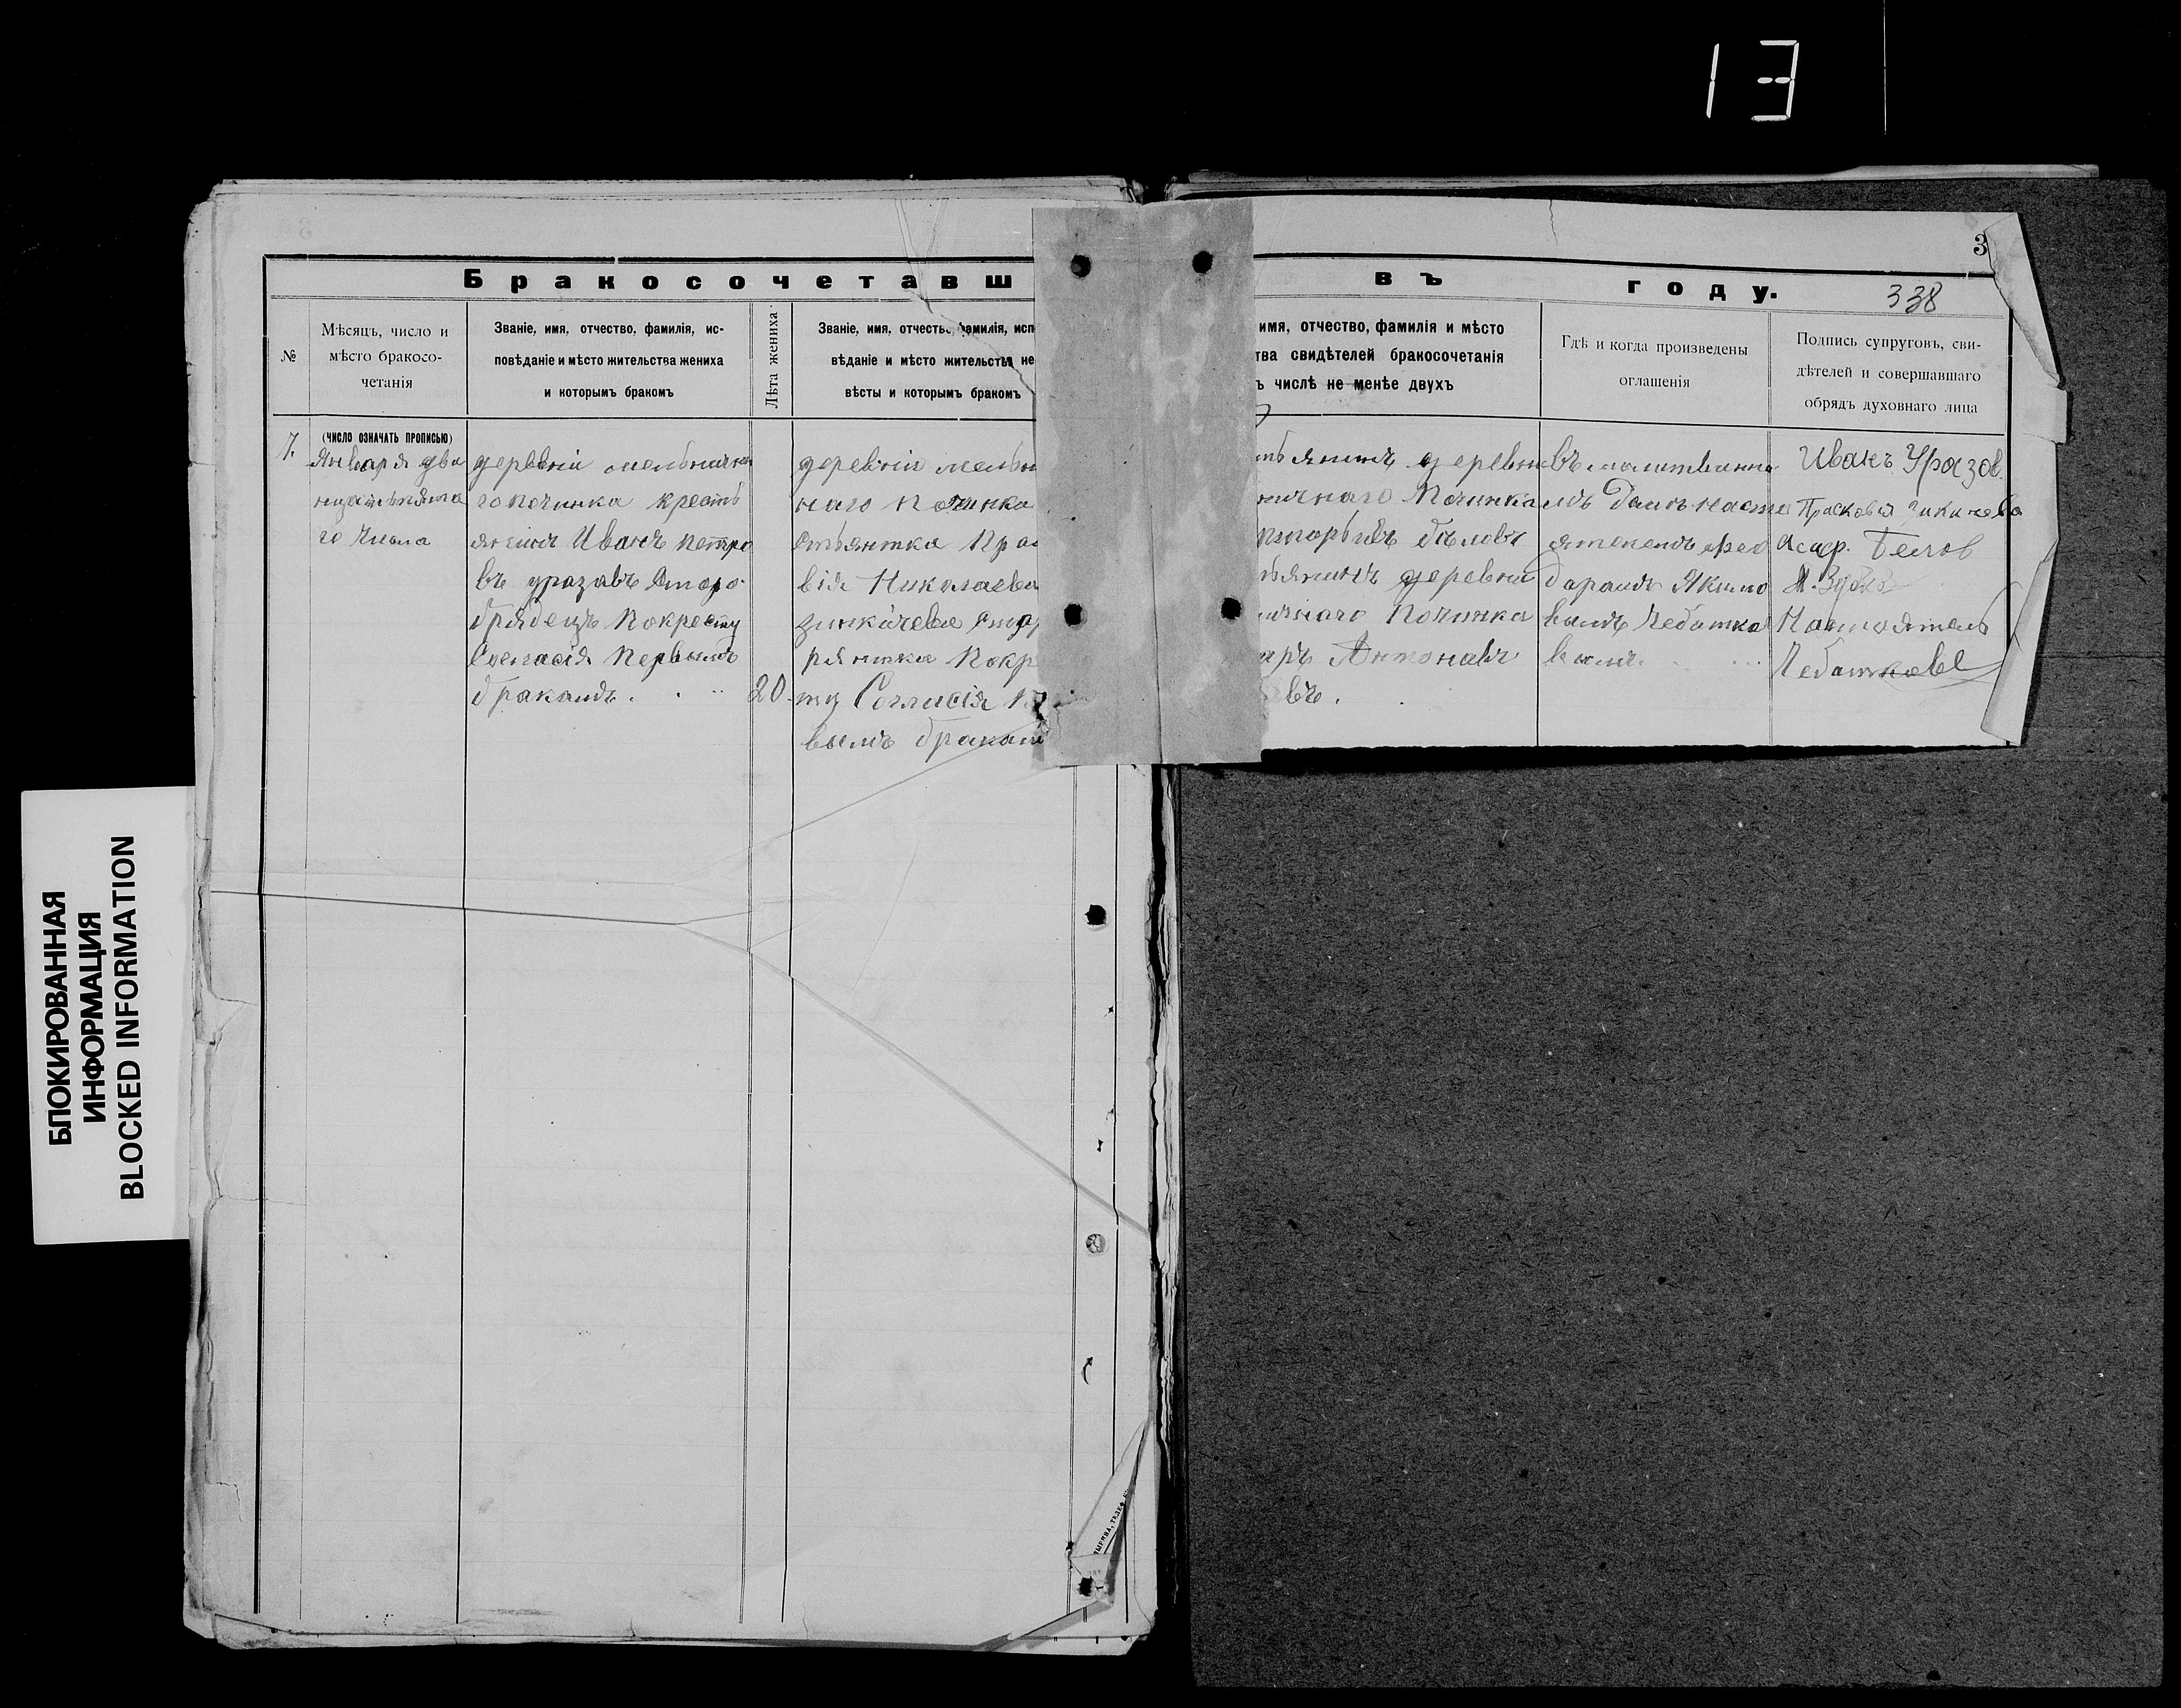 13
3
Бракосочетавш
въ году.
338
№
Мѣсяцъ, число и
мѣсто бракосо-
четанія
Званіе, имя, отчество, фамилія, ис-
повѣданіе и мѣсто жительства жениха
и которымъ бракомъ
Лѣта жениха
Званіе, имя, отчество, фамилія, исп
вѣданіе и мѣсто жительства не
вѣсты и которымъ бракомъ
имя, отчество, фамилія и мѣсто
тва свидѣтелей бракосочетанія
ъ числѣ не менѣе двухъ
Гдѣ и когда произведены
оглашенія
Подпись супруговъ, сви-
дѣтелей и совершавшаго
обрядъ духовнаго лица
(число означать прописью)
7.
Января два
го Числа
деревни
го починка кресть
янинъ Иванъ Петро
въ уразавъ Старо
брядецъ Покресту
Согласія Первымъ
бракамъ.
20
деревни мельн
наго Починка
стьянтка Пра
вія Николаева
зинкачева Ста
рянтка Покре
ту Согласія
вымъ бракам
тьянинъ деревни
ничнаго Починка
бѣловъ
тьянинъ деревни
ичнаго Починка
аръ Антонавъ
въ.
въ
мъ Данъ насто
ятелемъ фео
дарамъ Якимо
вымъ Чебатка
вымъ.
Иванъ Уразов.
Прасковья
Белов
Настоятель
Чебатковъ
БЛОКИРОВАННАЯ
ИНФОРМАЦИЯ
BLOCKED INFORMATION